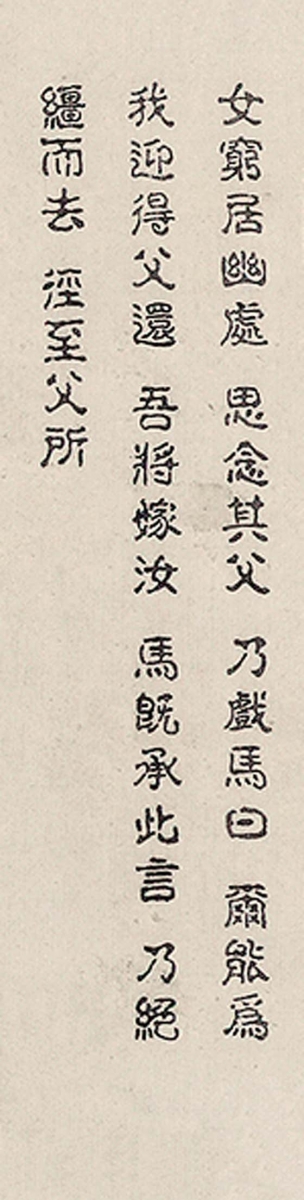 女窮居幽處 思念其父 乃戲馬曰 爾能為
我迎得父還 吾將嫁汝 馬既承此言 乃絕
繮而去 徑至父所